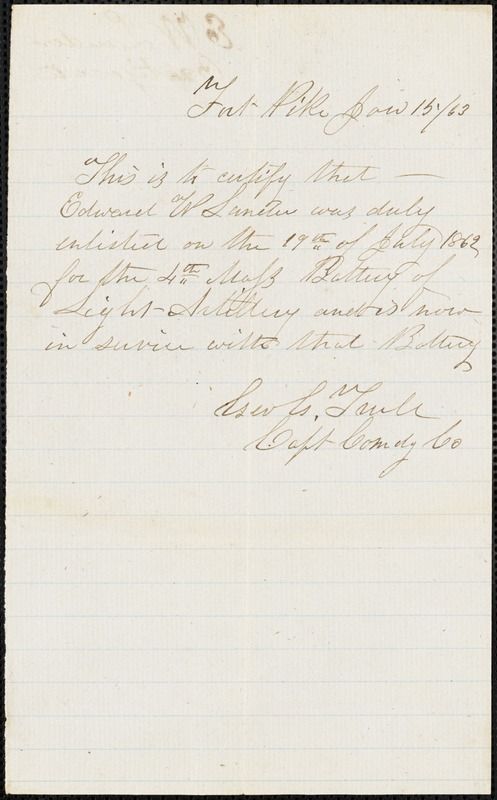 Fort Pike Jan 15/63
This is to certify that —
Edward W Lander was duly
enlisted on the 19th of July 1862
for the 4th Mass Battery of
Light Artillery and is now
in service with that Battery
Geo G. Trull
Capt Comdg Co